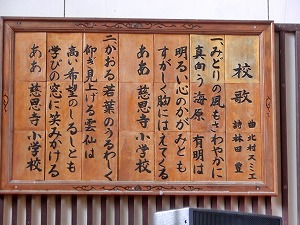 校歌
曲 北村スミエ
詩 林田 豊
一みどりの風もさわやかに
真向う海原 有明は
明るい心のかがみとも
すがしく胸にはえてくる
ああ 慈恩寺小学校
二かおる若葉のうるわしく
仰ぎ見上げる雲仙は
高い希望のしるしとも
学びの窓に笑みかける
ああ 慈恩寺小学校